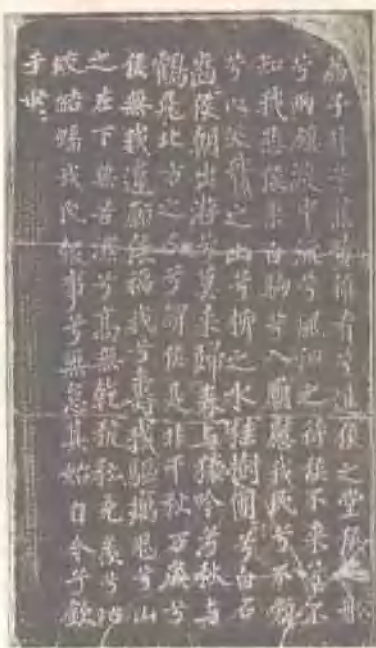 荔子丹兮蕉黃雜肴兮進侯之堂侯之船
兮兩旗渡中流兮風汩之待侯不來兮不
知我悲侯乘白駒兮入廟慰我民兮不嚬
兮以笑鵝之山兮柳之水桂樹團兮白石
齒侯朝出游兮暮來歸春與猿吟兮秋與
鶴飛北方之人兮謂侯是非千秋万歲兮
侯無我違願侯福我兮壽我驅癘鬼兮山
之左下無苦濕兮高無乾秔稌充羨兮蛇
蛟結蟠我民報事兮無怠其始自今兮欽
于世〻